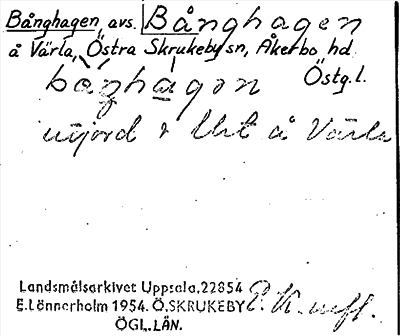 Bånghagen, avs. Bånghagen
å Värla, Östra Skrukeby sn, Åkerbo hd
Östg.l.
nyjord i Urt å Värla
Landsmålsarkivet Uppsala, 22854
E. Lönnerholm 1954. Ö. SKRUKEBY
ÖGL. LÄN.